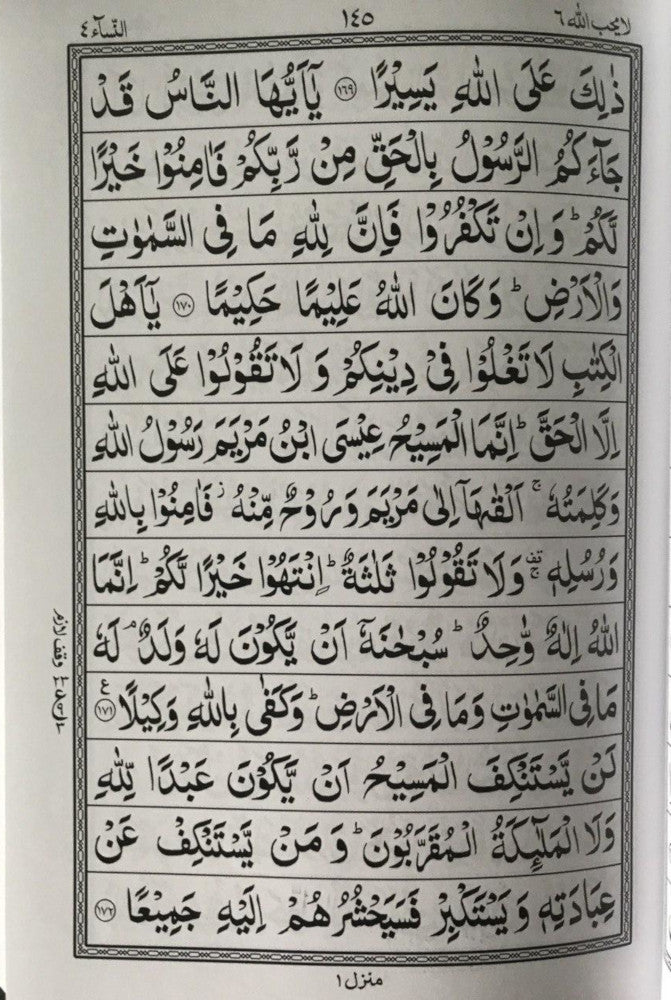 لا يحب الله ٦ ١٤٥ النسآء ٤
ذٰلِكَ عَلَى اللهِ يَسِيْرًا ﴿١٦٩﴾ يٰۤاَيُّهَا النَّاسُ قَدْ
جَآءَكُمُ الرَّسُوْلُ بِالْحَقِّ مِنْ رَّبِّكُمْ فَاٰمِنُوْا خَيْرًا
لَّكُمْ ؕ وَاِنْ تَكْفُرُوْا فَاِنَّ لِلّٰهِ مَا فِى السَّمٰوٰتِ
وَالْاَرْضِ ؕ وَكَانَ اللهُ عَلِيْمًا حَكِيْمًا ﴿١٧٠﴾ يٰۤاَهْلَ
الْكِتٰبِ لَا تَغْلُوْا فِىْ دِيْنِكُمْ وَلَا تَقُوْلُوْا عَلَى اللهِ
اِلَّا الْحَقَّ ؕ اِنَّمَا الْمَسِيْحُ عِيْسَى ابْنُ مَرْيَمَ رَسُوْلُ اللهِ
وَكَلِمَتُهٗ ۚ اَلْقٰىهَاۤ اِلٰى مَرْيَمَ وَرُوْحٌ مِّنْهُ ؗ فَاٰمِنُوْا بِاللهِ
وَرُسُلِهٖ ۚ وَلَا تَقُوْلُوْا ثَلٰثَةٌ ؕ اِنْتَهُوْا خَيْرًا لَّكُمْ ؕ اِنَّمَا
اللهُ اِلٰهٌ وَّاحِدٌ ؕ سُبْحٰنَهٗۤ اَنْ يَّكُوْنَ لَهٗ وَلَدٌ ۘ لَهٗ
مَا فِى السَّمٰوٰتِ وَمَا فِى الْاَرْضِ ؕ وَكَفٰى بِاللهِ وَكِيْلًا ﴿١٧١﴾ ع
لَنْ يَّسْتَنْكِفَ الْمَسِيْحُ اَنْ يَّكُوْنَ عَبْدًا لِّلّٰهِ
وَلَا الْمَلٰٓئِكَةُ الْمُقَرَّبُوْنَ ؕ وَمَنْ يَّسْتَنْكِفْ عَنْ
عِبَادَتِهٖ وَيَسْتَكْبِرْ فَسَيَحْشُرُهُمْ اِلَيْهِ جَمِيْعًا ﴿١٧٢﴾
وقف لازم
منزل ١